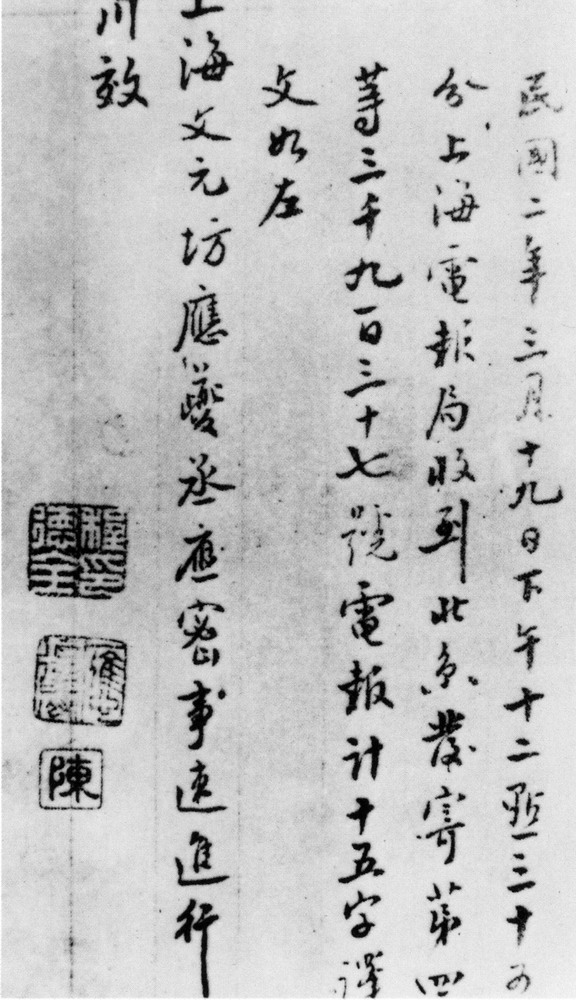 民國二年三月十九日下午十二點三十五
分上海電報局收到北京發寄第四
等三千九百三十七號電報計十五字譯
文如左
上海文元坊應夔丞應密事速進行
川效
陳